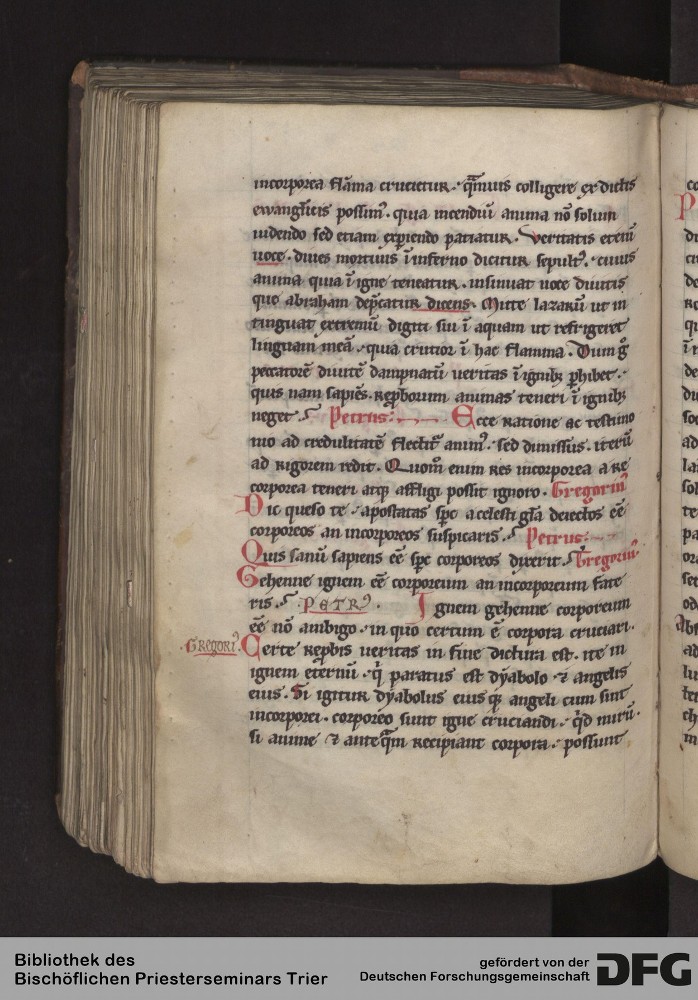 incorporea flāma crucietur. qͣmuis colligere ex dictis
ewanglicis possim᷒. quia incendiū anima nō solum
uidendo sed etiam experiendo patiatur. Veritatis etenī
uoce. diues mortuus ī inferno dicitur sepult᷒. cuius
anima quia ī igne teneatur. insinuat uoce diuitis
que abraham dep̄catur dicens. Mitte lazarū ut in
tinguat extremū digiti sui ī aquam ut refrigeret
linguam meā. quia crucior ī hac flamma. Dum gͦ
peccatorē diuitē dampnatū ueritas ī ignibꝫ phibet.
quis nam sapiēs. reꝓborum animas teneri ī ignibꝫ
neget. Petrus: Ecce ratione ac testimo
nio ad credulitatē flectit᷑ anim᷒. sed dimissus. iterū
ad rigorem redit. Quom̄ enim res incorporea a re
corporea teneri atqꝫ affligi possit ignoro. Gregorius
Dic queso te. apostatas spc̄ a celesti gl̄a deiectos eē
corporeos an incorporeos suspicaris. Petrus:
Quis sanū sapiens eē spc̄ corporeos dixerit. Gregorius
Gehenne ignem eē corporeum an incorporeum fate
ris. PETR᷒. Ignem gehenne corporeum
eē nō ambigo. in quo certum ē corpora cruciari.
GREGORI᷒. Certe reꝓbis ueritas in fine dictura est. ite in
ignem eternū. q̇ paratus est dyabolo ⁊ angelis
eius. Si igitur dyabolus eius qꝫ angeli cum sint
incorporei. corporeo sunt igne cruciandi. qͥd mirū.
si anime ⁊ anteqͣm recipiant corpora. possunt
Bibliothek des
Bischöflichen Priesterseminars Trier
gefördert von der
Deutschen Forschungsgemeinschaft
DFG